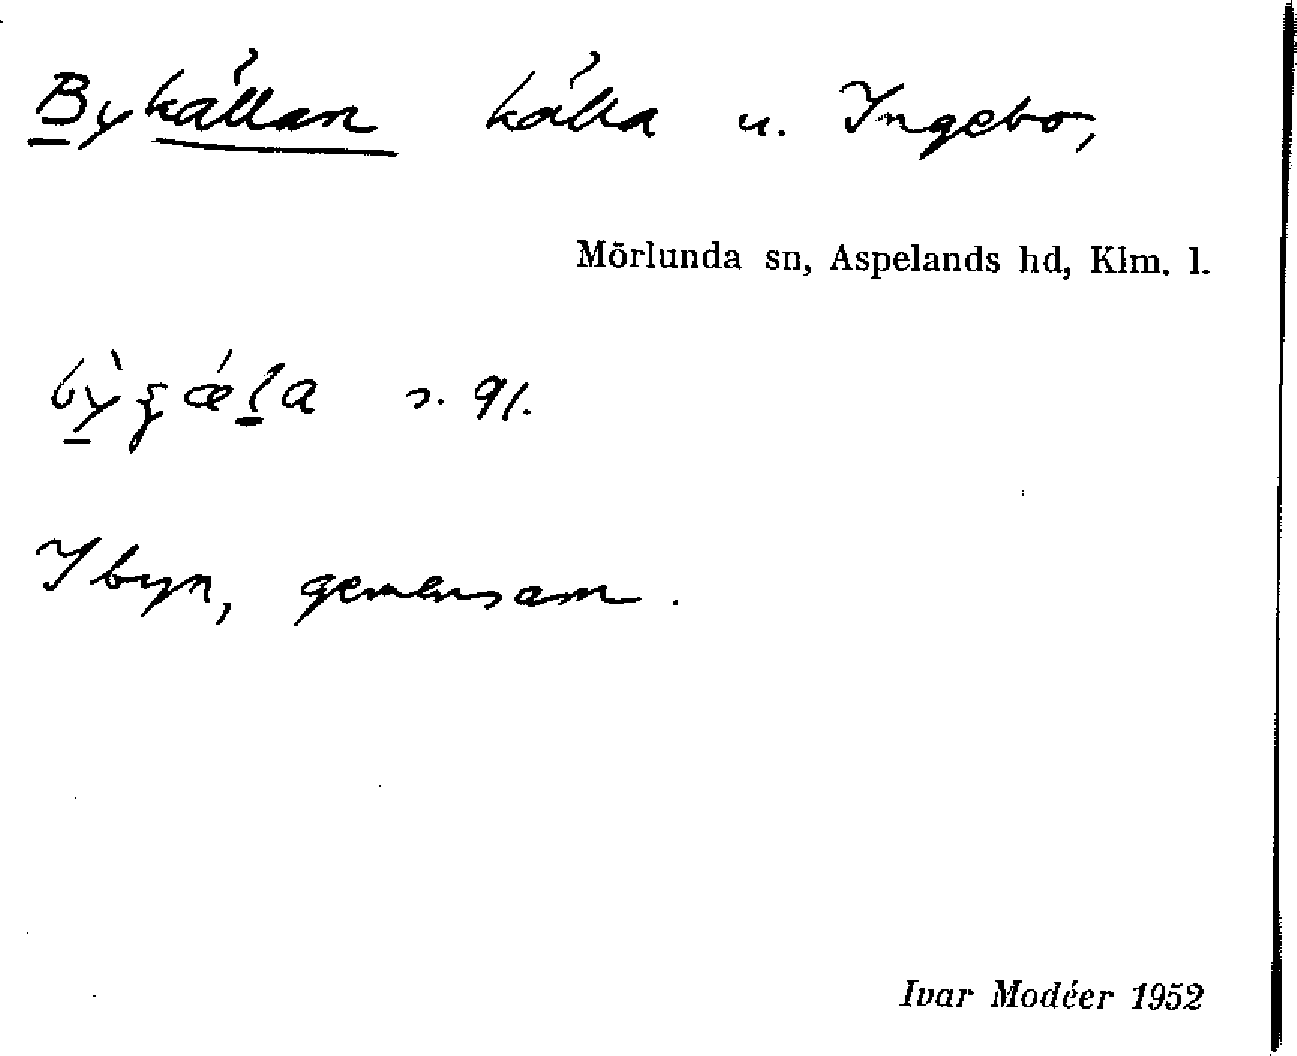 Bykällan källa u. Ingebo,
Mörlunda sn, Aspelands hd, Klm. l.
s. 91.
I byn, gemensam.
Ivar Modéer 1952